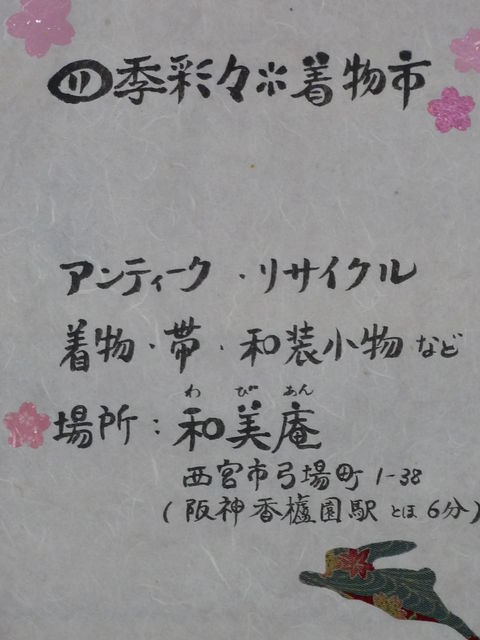 四季彩々※着物市
アンティーク・リサイクル
着物・帯・和装小物など
わ び あん
場所:和美庵
西宮市弓場町1-38
(阪神香櫨園駅とほ6分)